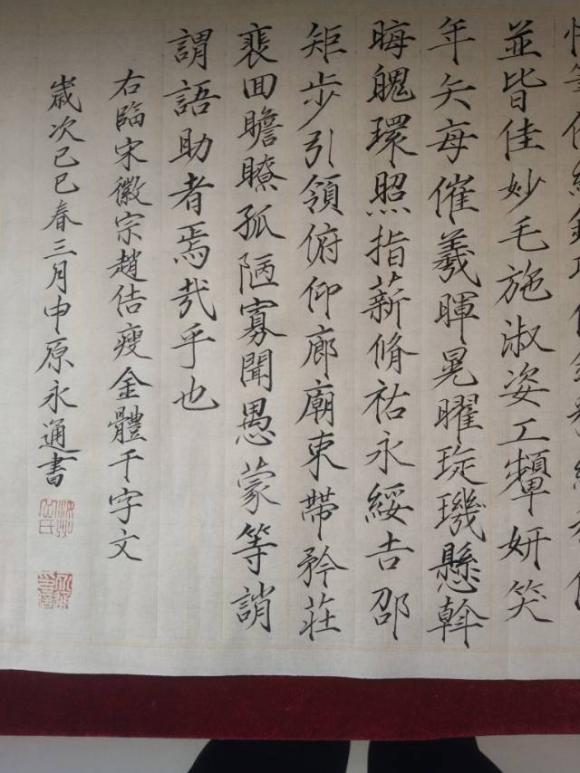 並皆佳妙毛施淑姿工顰妍笑
年矢每催羲暉晃曜琁璣懸斡
晦魄環照指薪脩祜永綏吉邵
矩步引領俯仰廊廟束帶矜莊
裵回瞻瞭孤陋寡聞愚蒙等誚
謂語助者焉哉乎也
右臨宋徽宗趙佶瘦金體千字文
嵗次己巳春三月申原永通書